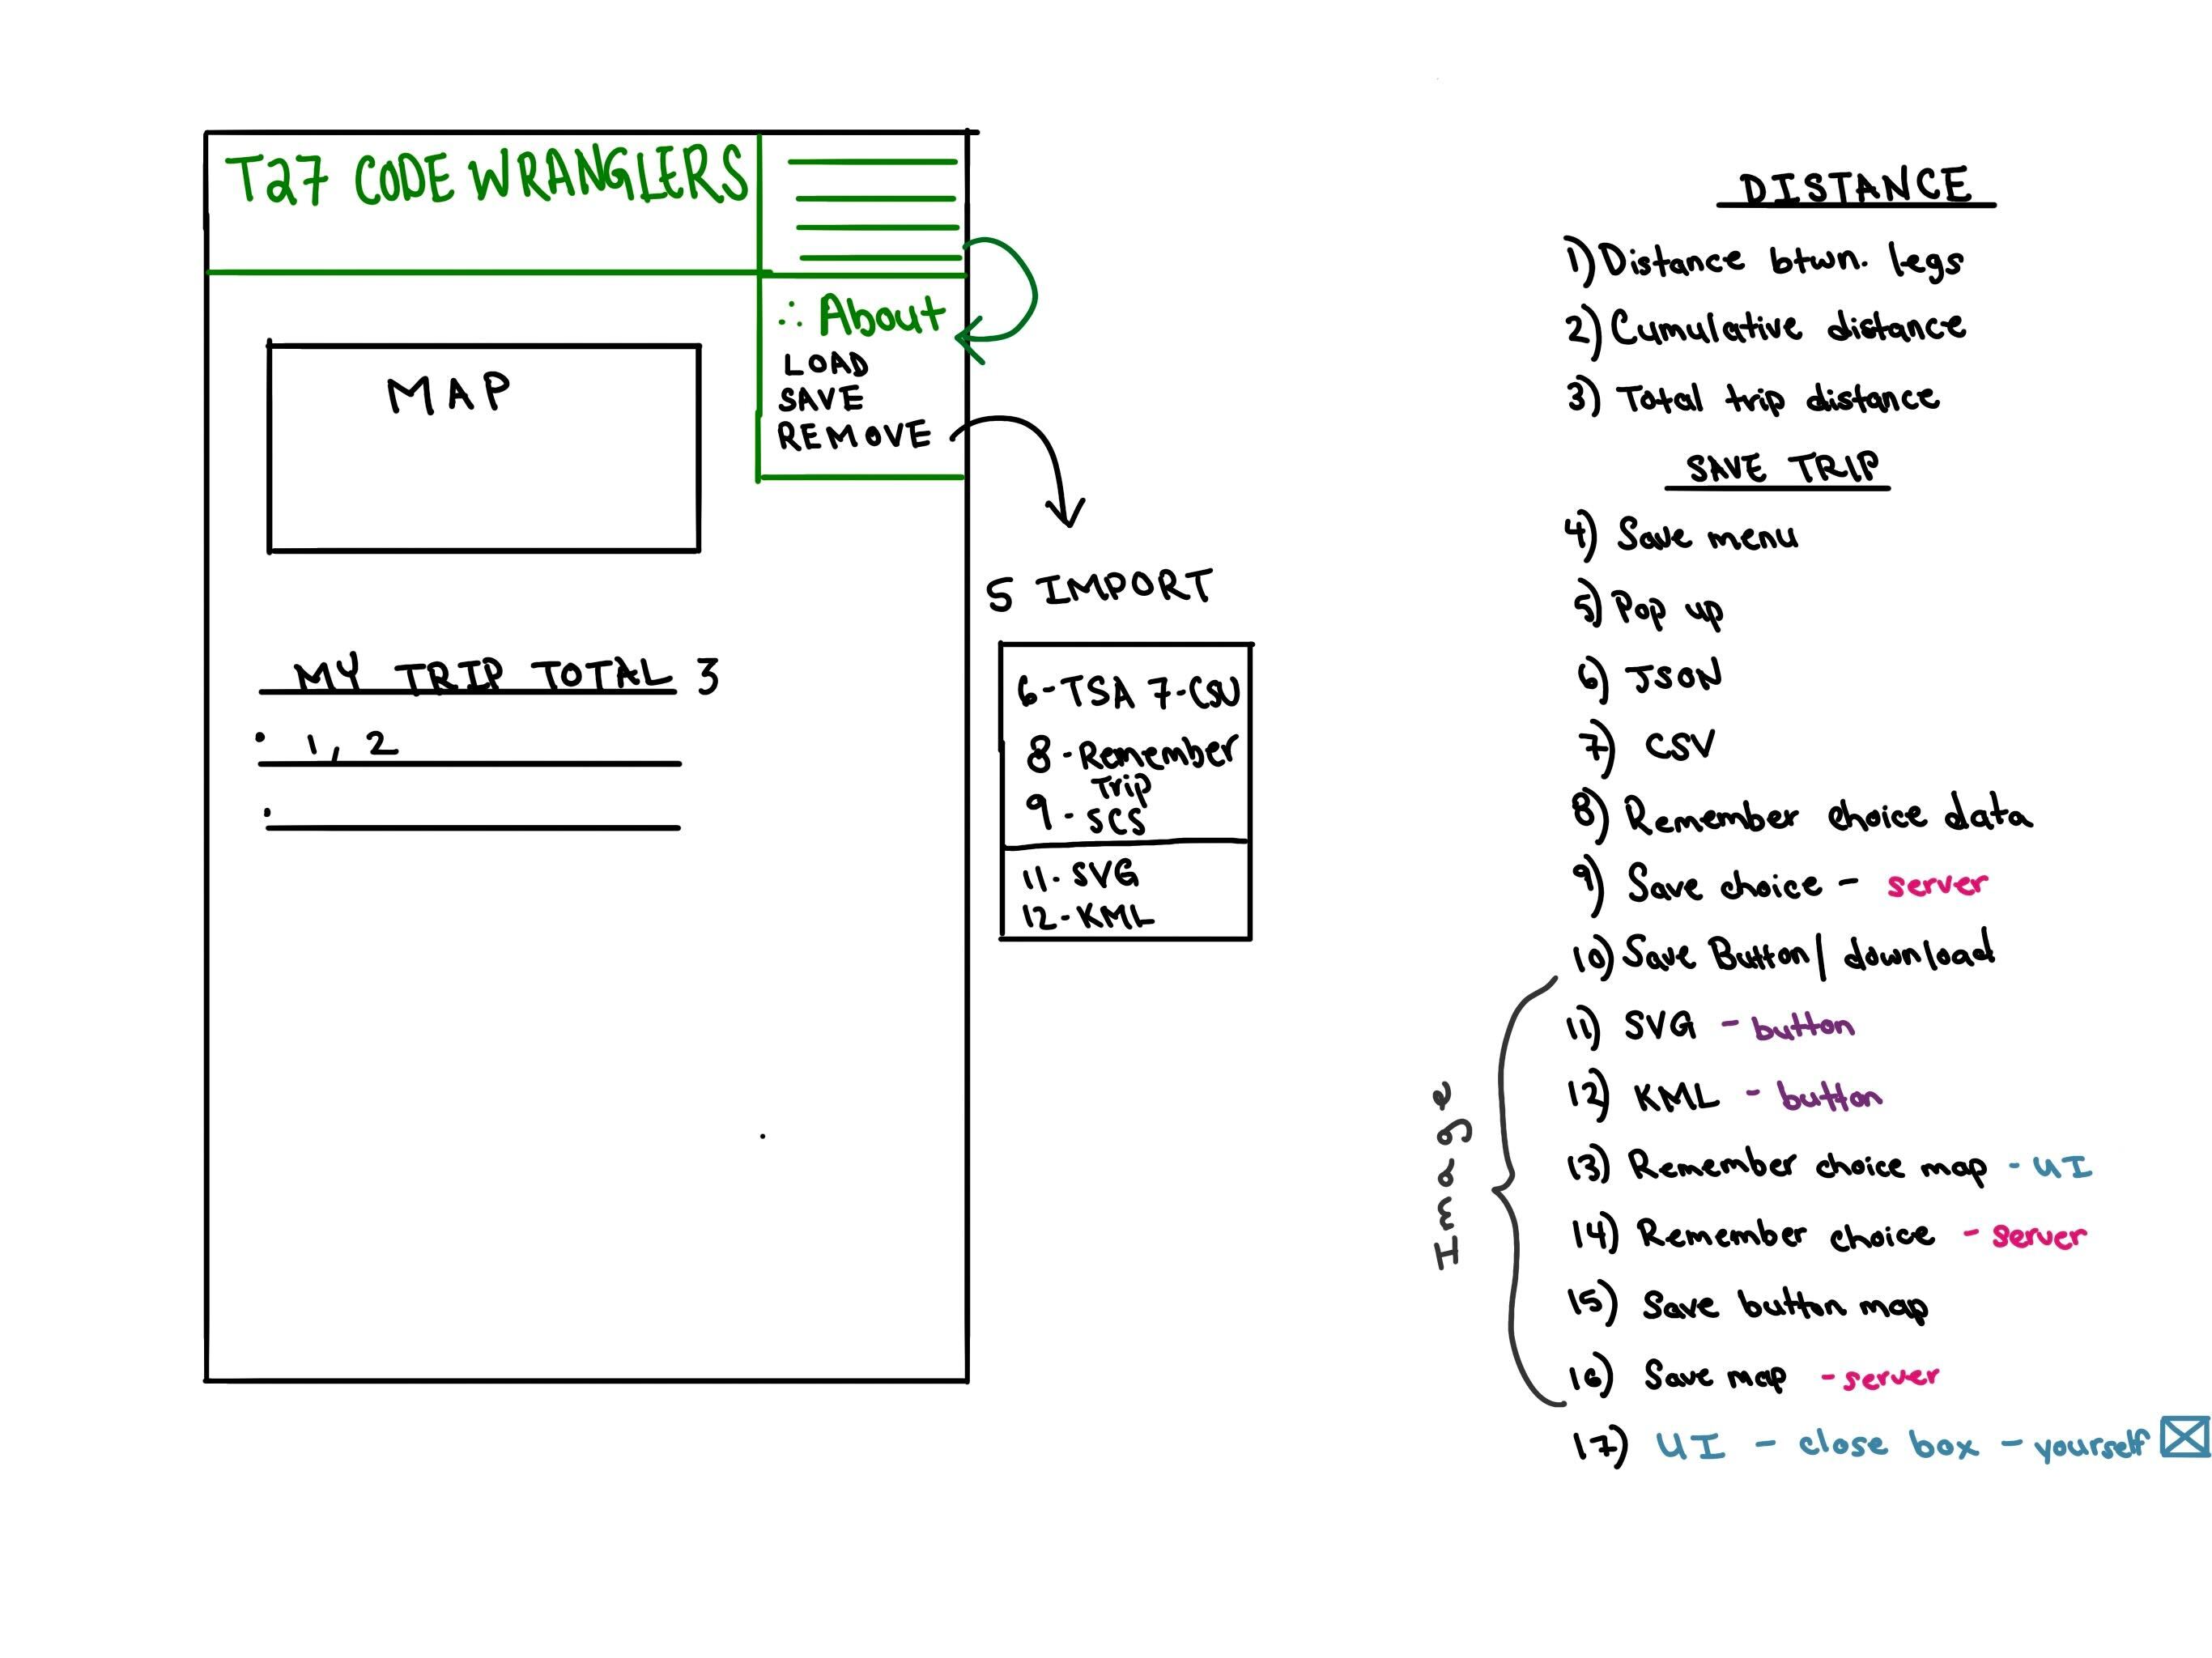 T27 CODE WRANGLERS
∴ About
LOAD
SAVE
REMOVE
MAP
MY TRIP TOTAL 3
1, 2
5 IMPORT
6-TSA 7-CSV
8-Remember
Trip
9-SCS
11. SVG
12-KML
DISTANCE
1) Distance btwn. legs
2) Cumulative distance
3) Total trip distance
SAVE TRIP
4) Save menu
5) Pop up
6) JSON
7) CSV
8) Remember choice data
9) Save choice - server
10) Save Button/download
Image
11) SVG - button
12) KML - button
13) Remember choice map - UI
14) Remember choice - server
15) Save button map
16) Save map - server
17) UI - close box - yourself